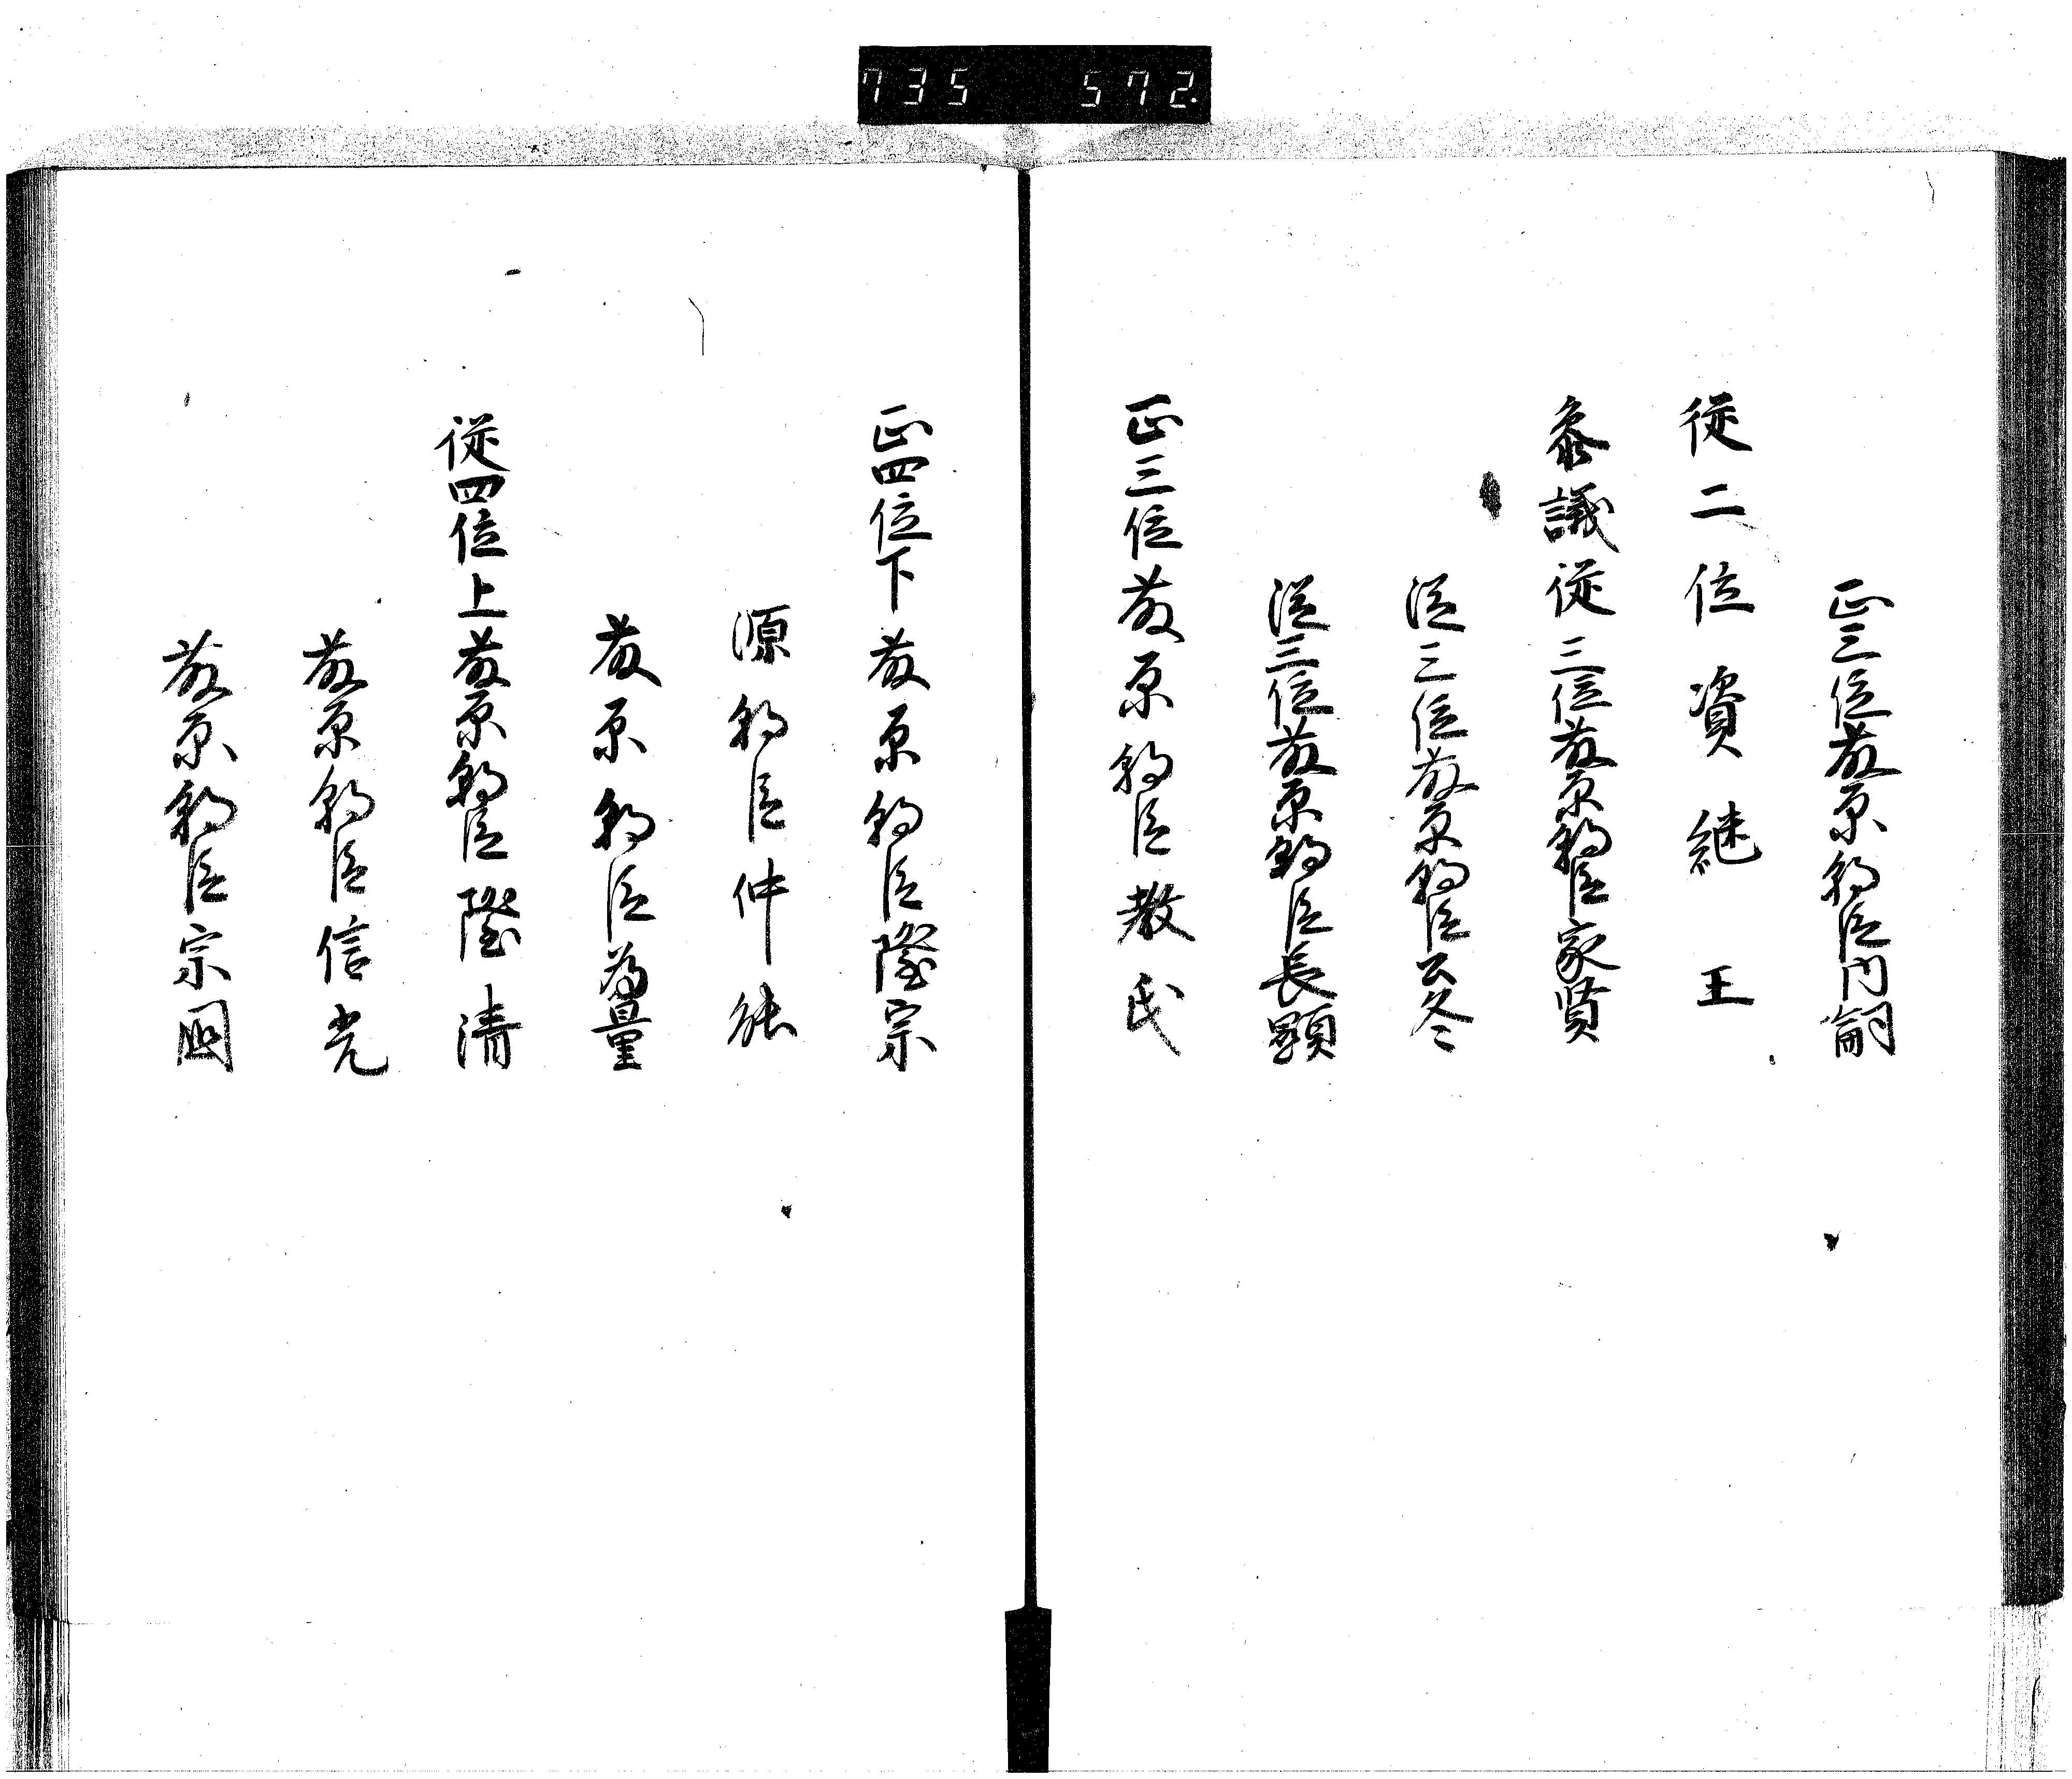 735 572
正三位藤原朝臣内嗣
従二位資継王
参議従三位藤原朝臣家賢
従三位藤原朝臣公冬
従三位藤原朝臣長顕
正三位藤原朝臣教氏
正四位下藤原朝臣隆宗
源朝臣仲能
藤原朝臣為量
従四位上藤原朝臣隆清
藤原朝臣信光
藤原朝臣宗国